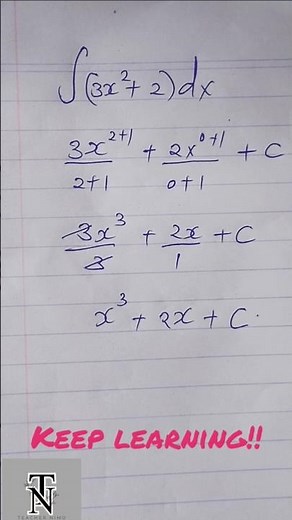 ∫(3x²+2)dx
3x²⁺¹/2+1 + 2x⁰⁺¹/0+1 + C
3x³/3 + 2x/1 + C
x³ + 2x + C.
KEEP LEARNING!!
TN
TEACHER NIMO